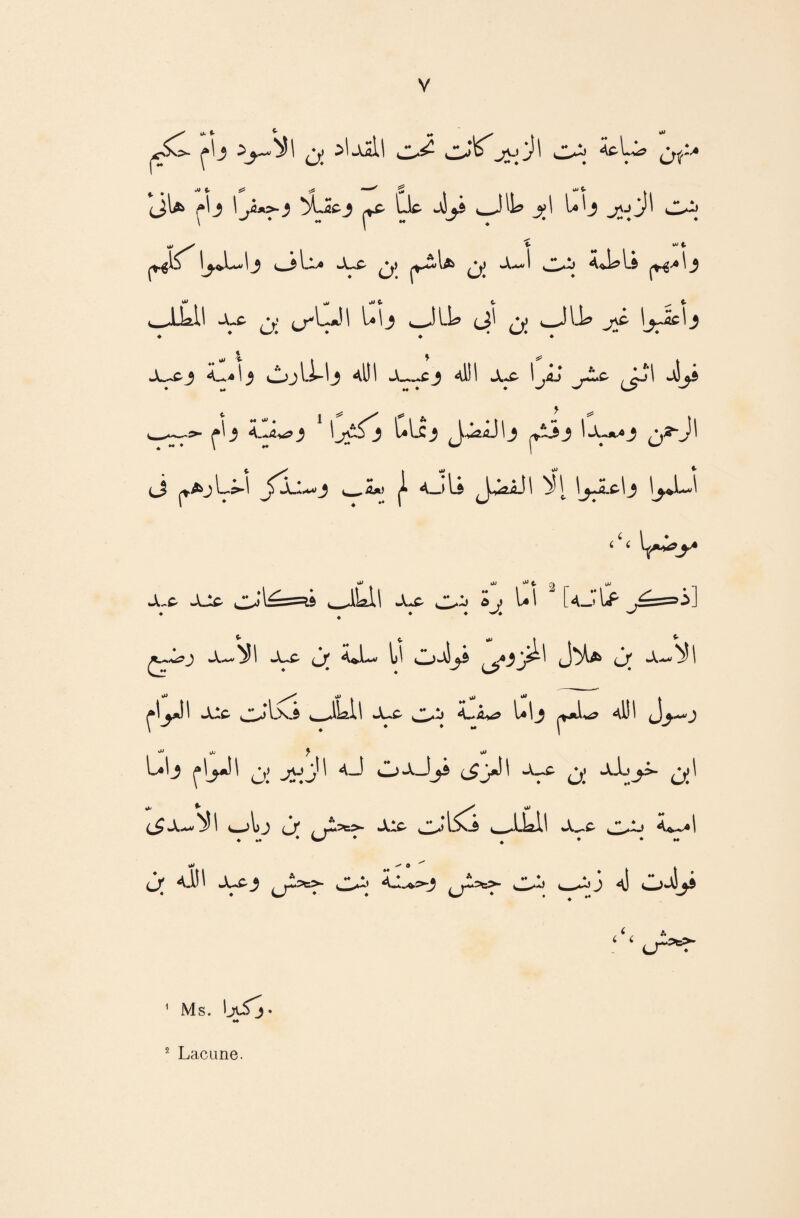 ٧
منهنّ ضباعة بنت الزبير كانت تحت المقداد بن الأسود وأمّ حكيم
بنت الزبير وأمّا ابو طالب فولد عليًّا عم وعقيلا وجعفرا وأمّ هانئ
وأمّهم فاطمة بنت أسد بن هاشم بن عبد مناف واسلموا كلّهم
وأعقبوا غير طالب بن أبي طالب وأمّا العبّاس بن عبد المطّلب
فولد اثني عشر نفرا عبد الله وعبيد الله والحارث وأمية وعبد
الرحمن ومعبدا وقثم والفضل وتمّاما وكثيرا ¹ وصفيّة وأم حبيب
أسلموا واعقبوا إلّا الفضل فانّه لم يعقب وسنذكر أخبارهم في
موضعها ،،
[ذكر عمّاته] ² أمّا برّة بنت عبد المطّلب فكانت عند عبد
الأسد بن هلال المخزوميّ فولدت أبا سلمة بن عبد الأسد رضيع
رسول الله صلعم وامّا صفيّة بنت عبد المطّلب فكانت عند العوّام
ابن خويلد بن عبد العزّى فولدت له الزبير بن العوّام وامّا
اميمة بنت عبد المطّلب فكانت عند جحش بن رباب الأسدىّ
فولدت له زينب بنت جحش وحمنة بنت جحش وعبد الله بن
جحش ،،
¹ Ms. وكبيرا.
² Lacune.